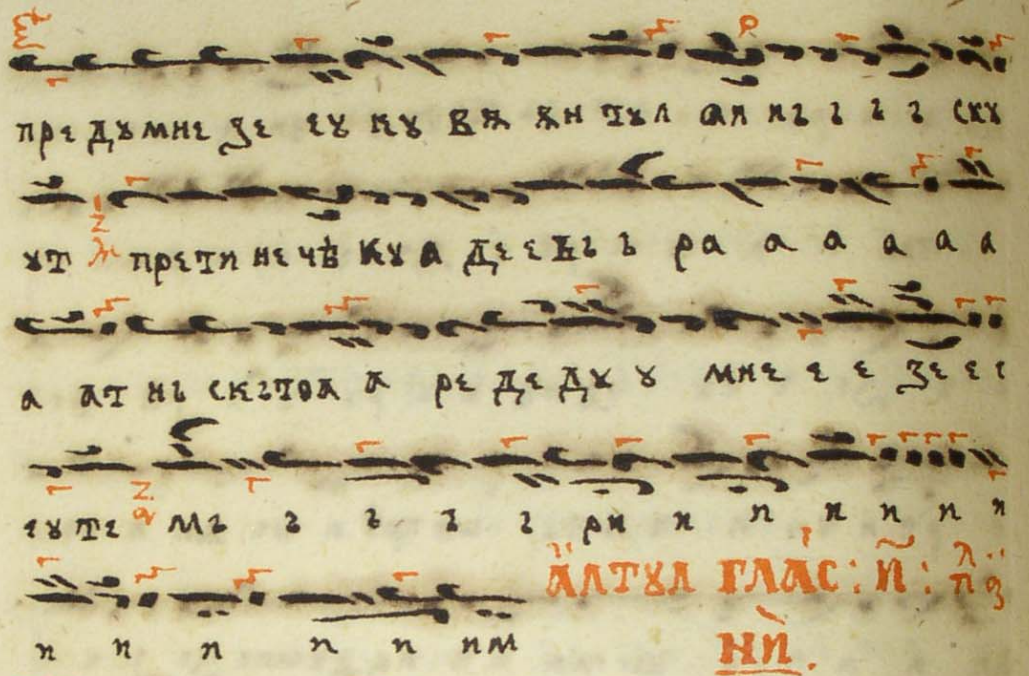 пре дꙋмне зе еꙋ кꙋ вѫ ѫн тꙋл ал нъ ъ ъ ъ скꙋ
ꙋт пре ти не чѣ кꙋ а де е въ ъ ра а а а а а
а ат нъ скътоа а ре де дꙋ ꙋ мне е е зе е е
еꙋ те мъ ъ ъ ъ ъ ри и и и и и и
и и и и и им а҆лтꙋл гла́с: и҃: 
ни̇.